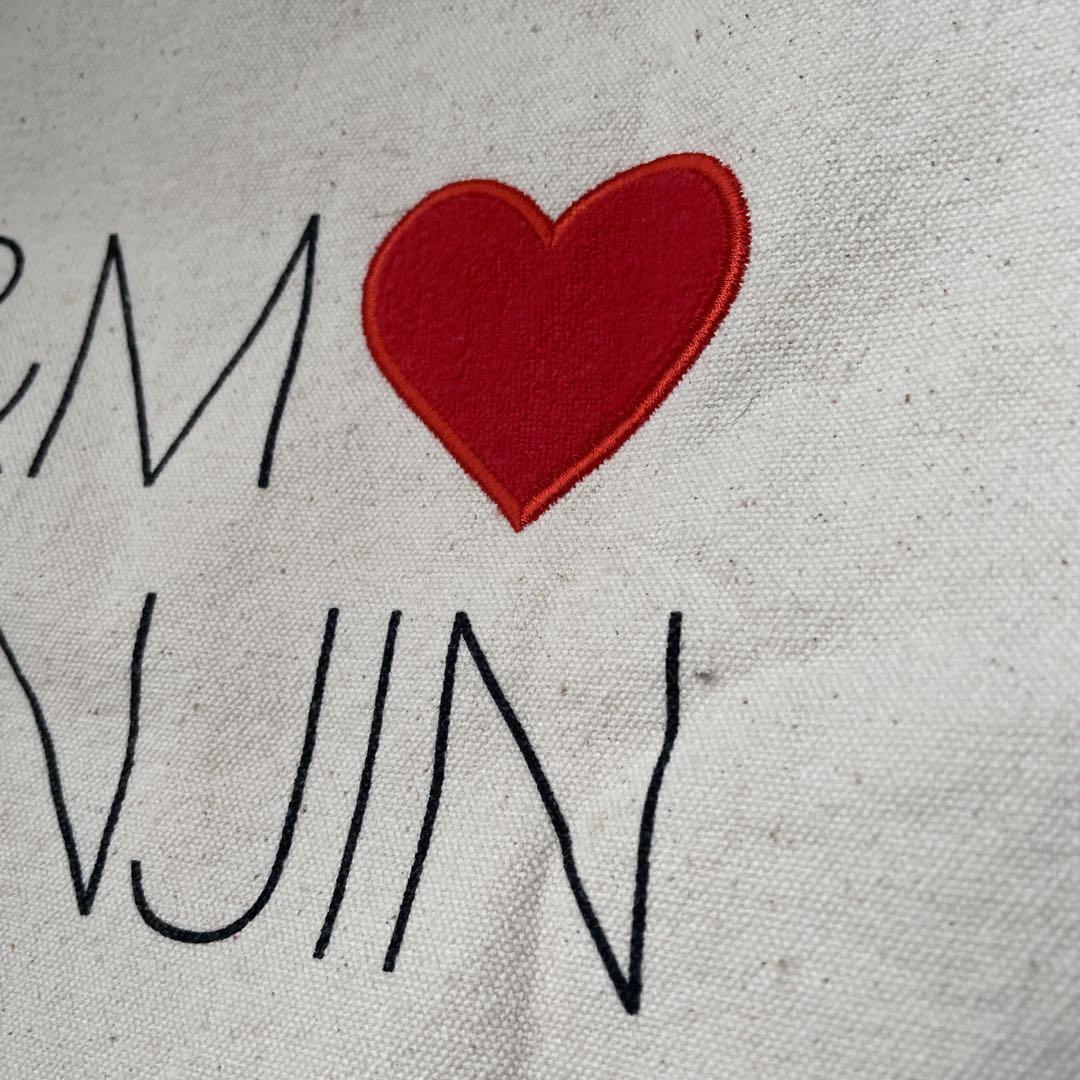 M
JIN